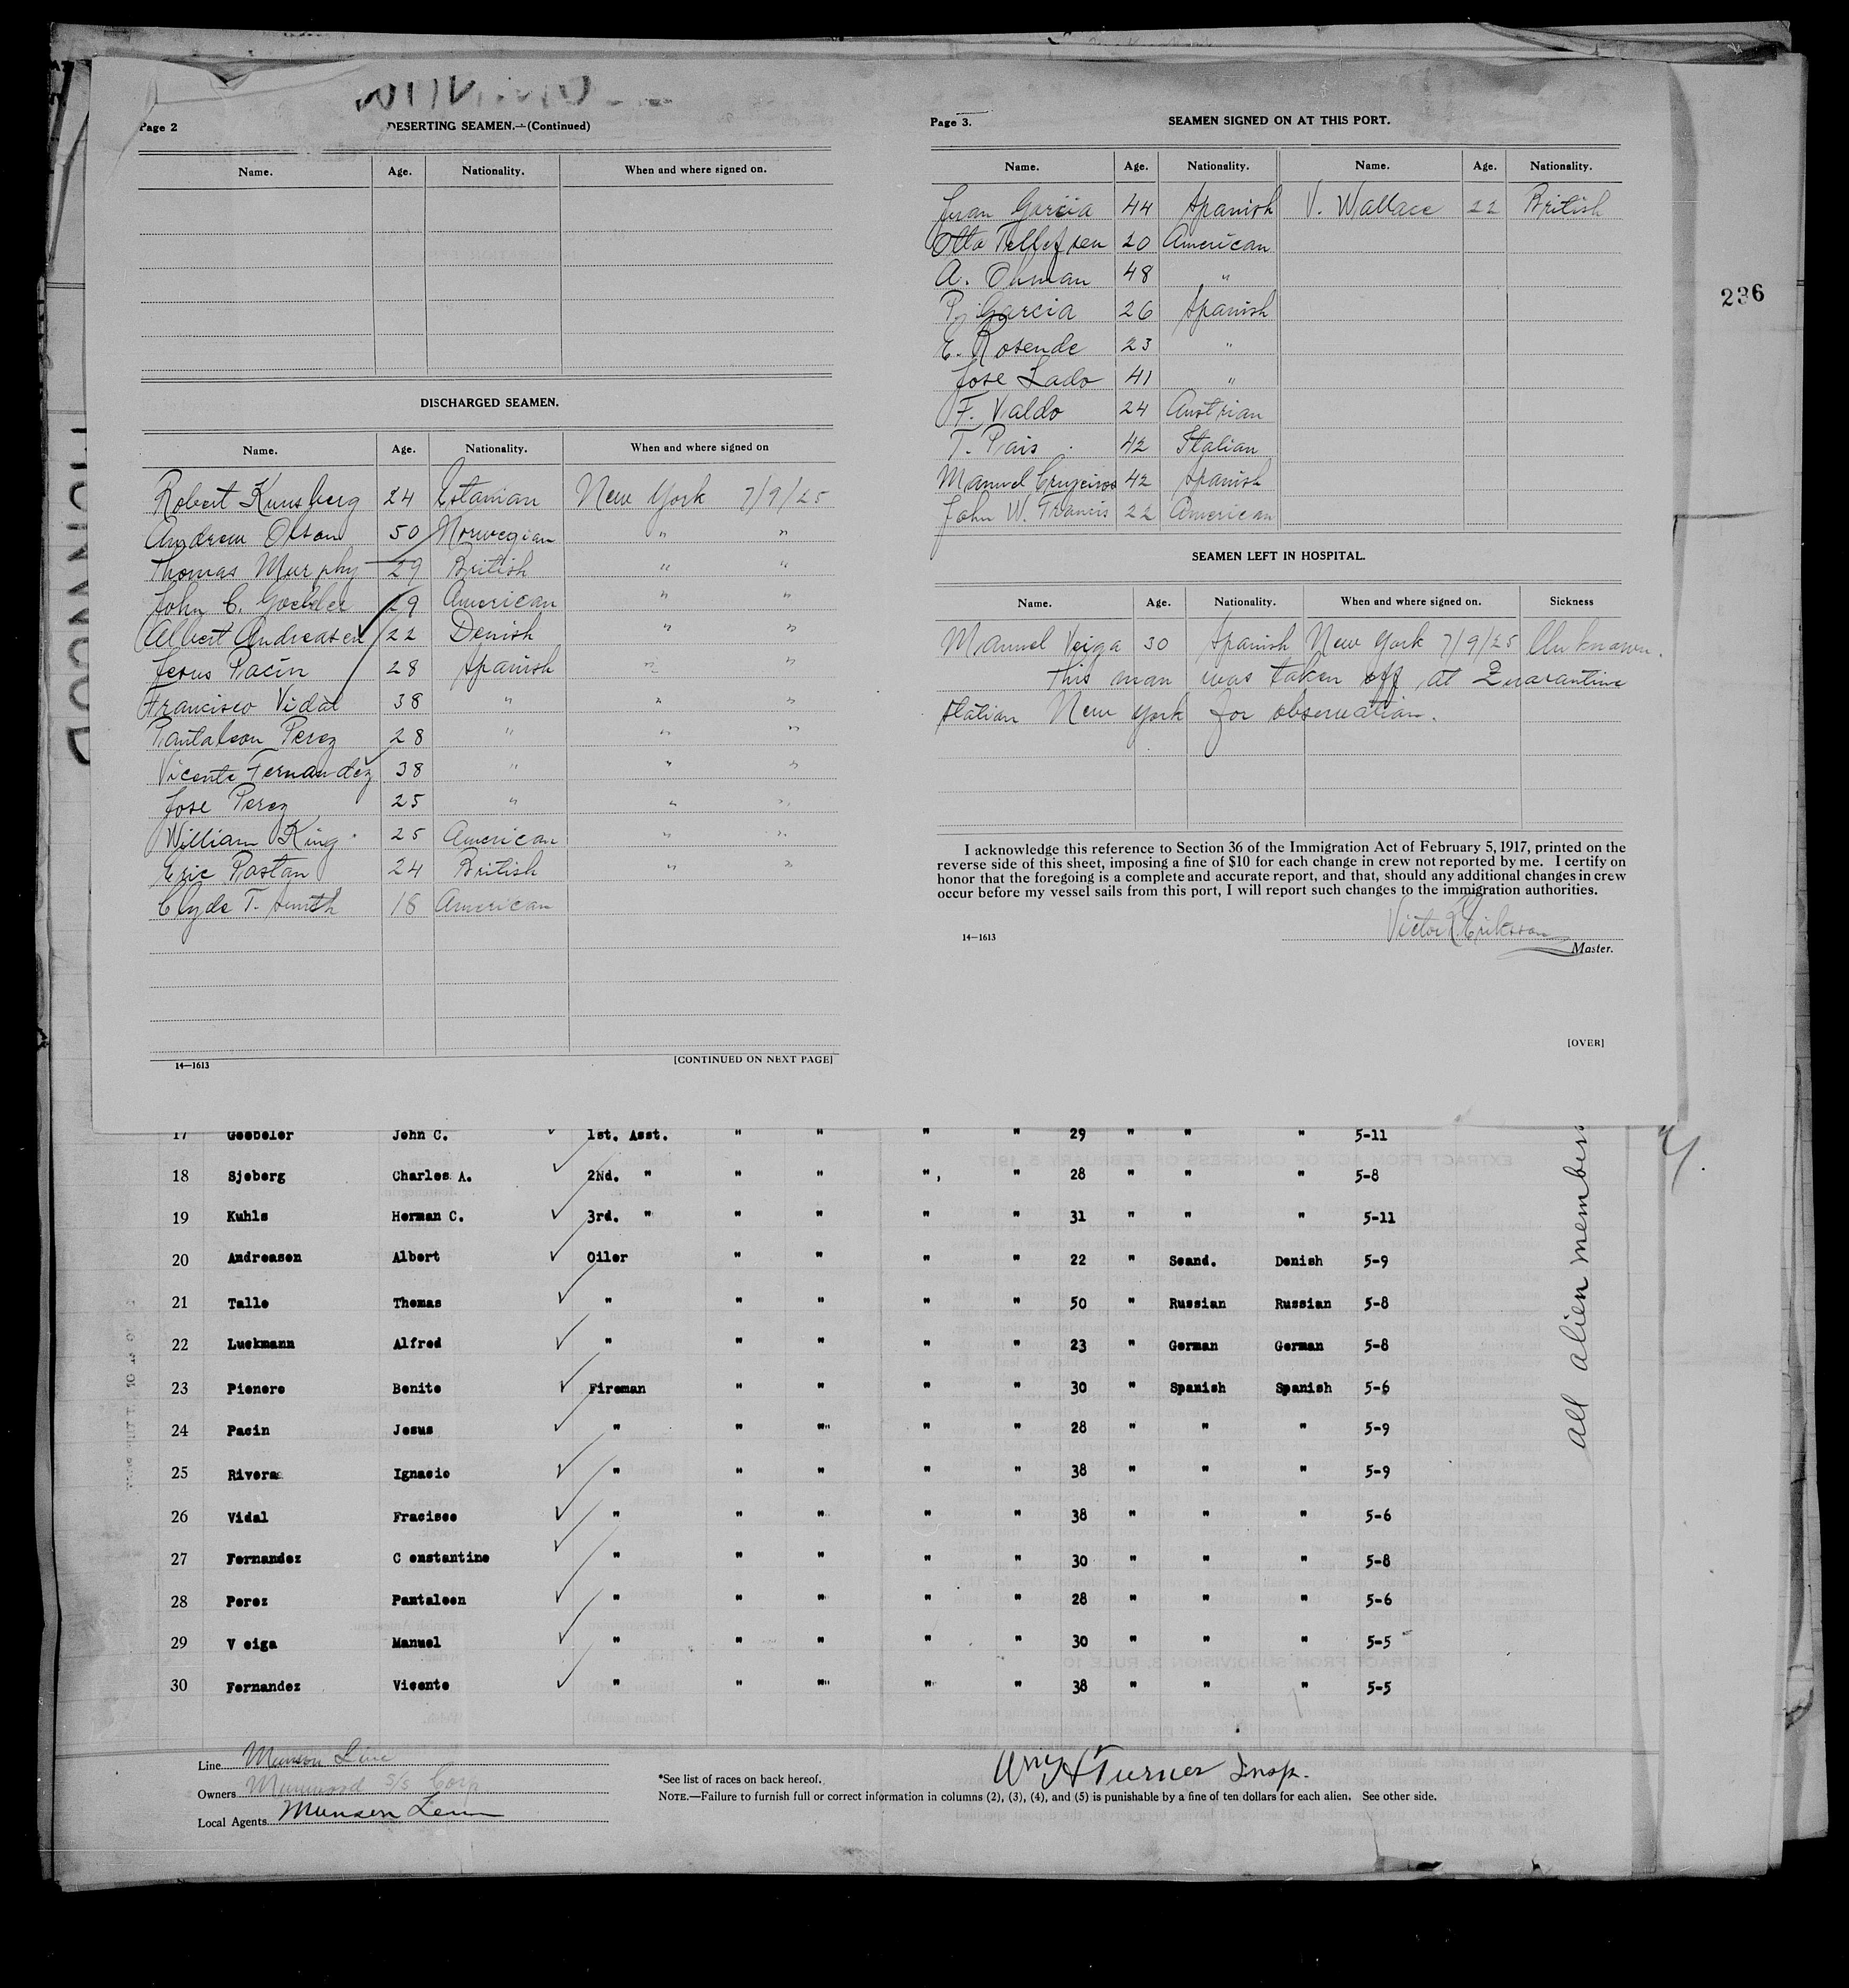 Page 2
DESERTING SEAMEN.—(Continued)
Name. Age. Nationality. When and where signed on.
DISCHARGED SEAMEN.
Name. Age. Nationality. When and where signed on
Robert Kunsberg 24 Estanian New York 7/9/25
Andrew Olson 50 Norwegian " "
Thomas Murphy 29 British " "
John C. Goebeler 29 American " "
Albert Andreasen 22 Denish " "
Jesus Pacin 28 Spanish " "
Francisco Vidal 38 " " "
Pantaleon Perez 28 " " "
Vicente Fernandez 38 " " "
Jose Perez 25 " " "
William King 25 American " "
Eric Pastan 24 British " "
Clyde T. Smith 18 American
14—1613
[CONTINUED ON NEXT PAGE]
Page 3.
SEAMEN SIGNED ON AT THIS PORT.
Name. Age. Nationality. Name. Age. Nationality.
Juan Garcia 44 Spanish V. Wallace 22 British
Otto Tellefsen 20 American
A. Ohman 48 "
P. Garcia 26 Spanish
E. Rosende 23 "
Jose Lado 41 "
F. Valdo 24 Austrian
T. Pais 42 Italian
Manuel Cruzeiros 42 Spanish
John W. Francis 22 American
SEAMEN LEFT IN HOSPITAL.
Name. Age. Nationality. When and where signed on. Sickness
Manuel Veiga 30 Spanish New York 7/9/25 Unknown.
This man was taken off at Quarantine
station New York for observation.
I acknowledge this reference to Section 36 of the Immigration Act of February 5, 1917, printed on the
reverse side of this sheet, imposing a fine of $10 for each change in crew not reported by me. I certify on
honor that the foregoing is a complete and accurate report, and that, should any additional changes in crew
occur before my vessel sails from this port, I will report such changes to the immigration authorities.
Victor Erikson
14—1613
Master.
[OVER]
236
17 Goebeler John C. 1st. Asst. " " " " 29 " " " 5-11
18 Sjoberg Charles A. 2Nd. " " " " " 28 " " " 5-8
19 Kuhls Herman C. 3rd. " " " " " 31 " " " 5-11
20 Andreasen Albert Oiler " " " " 22 " Scand. Denish 5-9
21 Talle Thomas " " " " " 50 " Russian Russian 5-8
22 Luckmann Alfred " " " " " 23 " German German 5-8
23 Pienero Benito Fireman " " " " 30 " Spanish Spanish 5-6
24 Pacin Jesus " " " " " 28 " " " 5-9
25 Rivera Ignacio " " " " " 38 " " " 5-9
26 Vidal Fracisco " " " " " 38 " " " 5-6
27 Fernandez C onstantino " " " " " 30 " " " 5-8
28 Perez Pantaleon " " " " " 28 " " " 5-6
29 V eiga Manuel " " " " " 30 " " " 5-5
30 Fernandez Vicente " " " " " 38 " " " 5-5
all alien members
Line Munson Line
Owners Munwood S/S Corp
Local Agents Munson Line
*See list of races on back hereof.
Wm H Turner Insp.
NOTE.—Failure to furnish full or correct information in columns (2), (3), (4), and (5) is punishable by a fine of ten dollars for each alien. See other side.